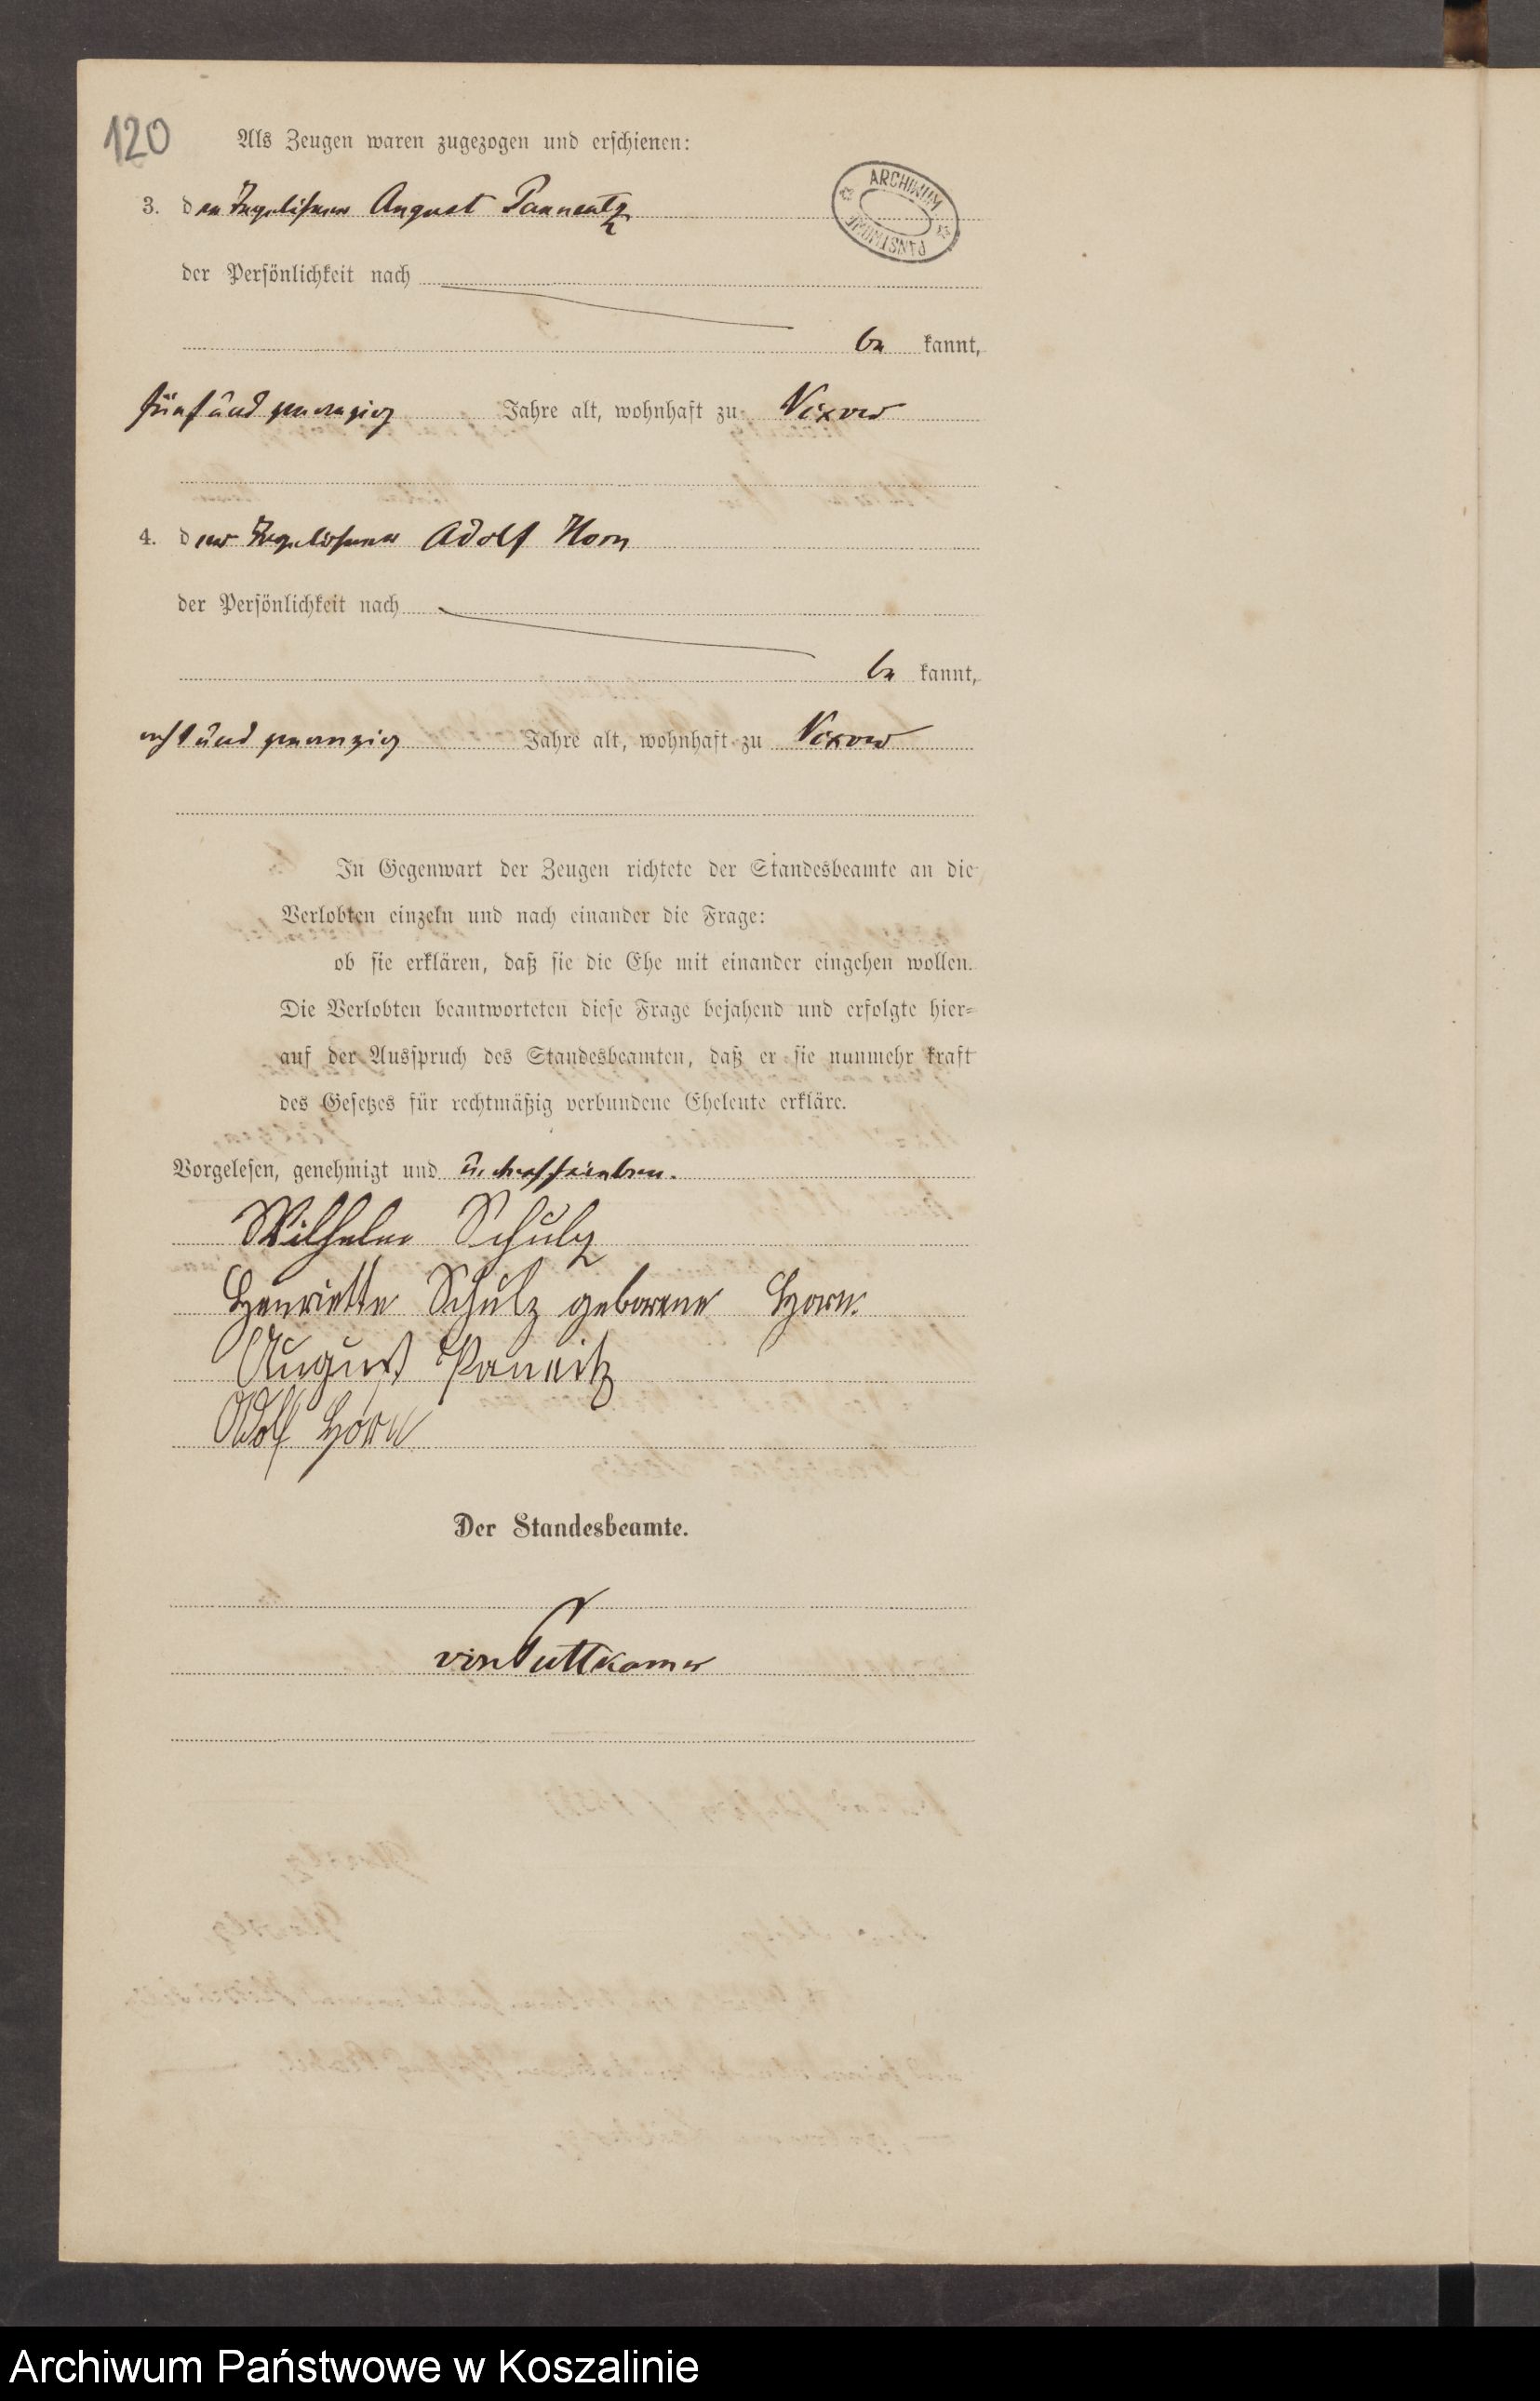 120
Als Zeugen waren zugezogen und erschienen:
ARCHIWUM PAŃSTWOWE
3. der Tagelöhner August Pannentz
der Persönlichkeit nach
be kannt,
fünfundzwanzig Jahre alt, wohnhaft zu Vixow
4. der Tagelöhner Adolf Horn
der Persönlichkeit nach
be kannt,
achtundzwanzig Jahre alt, wohnhaft zu Vixow
In Gegenwart der Zeugen richtete der Standesbeamte an die
Verlobten einzeln und nach einander die Frage:
ob sie erklären, daß sie die Ehe mit einander eingehen wollen.
Die Verlobten beantworteten diese Frage bejahend und erfolgte hier-
auf der Ausspruch des Standesbeamten, daß er sie nunmehr kraft
des Gesetzes für rechtmäßig verbundene Eheleute erkläre.
Vorgelesen, genehmigt und unterschrieben.
Wilhelm Schulz
Henriette Schulz geborene Horn.
August Pannitz
Adolf Horn
Der Standesbeamte.
von Puttkamer
Archiwum Państwowe w Koszalinie